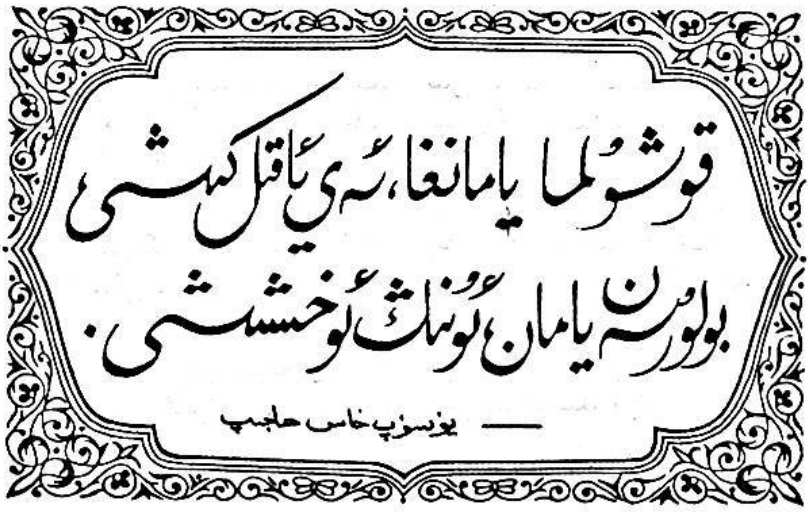 قوشۇلما يامانغا، ئەي ئاقىل كىشى،
بولۇرسەن يامان، ئۇنىڭ ئوخشىشى.
— يۈسۈپ خاس ھاجىپ